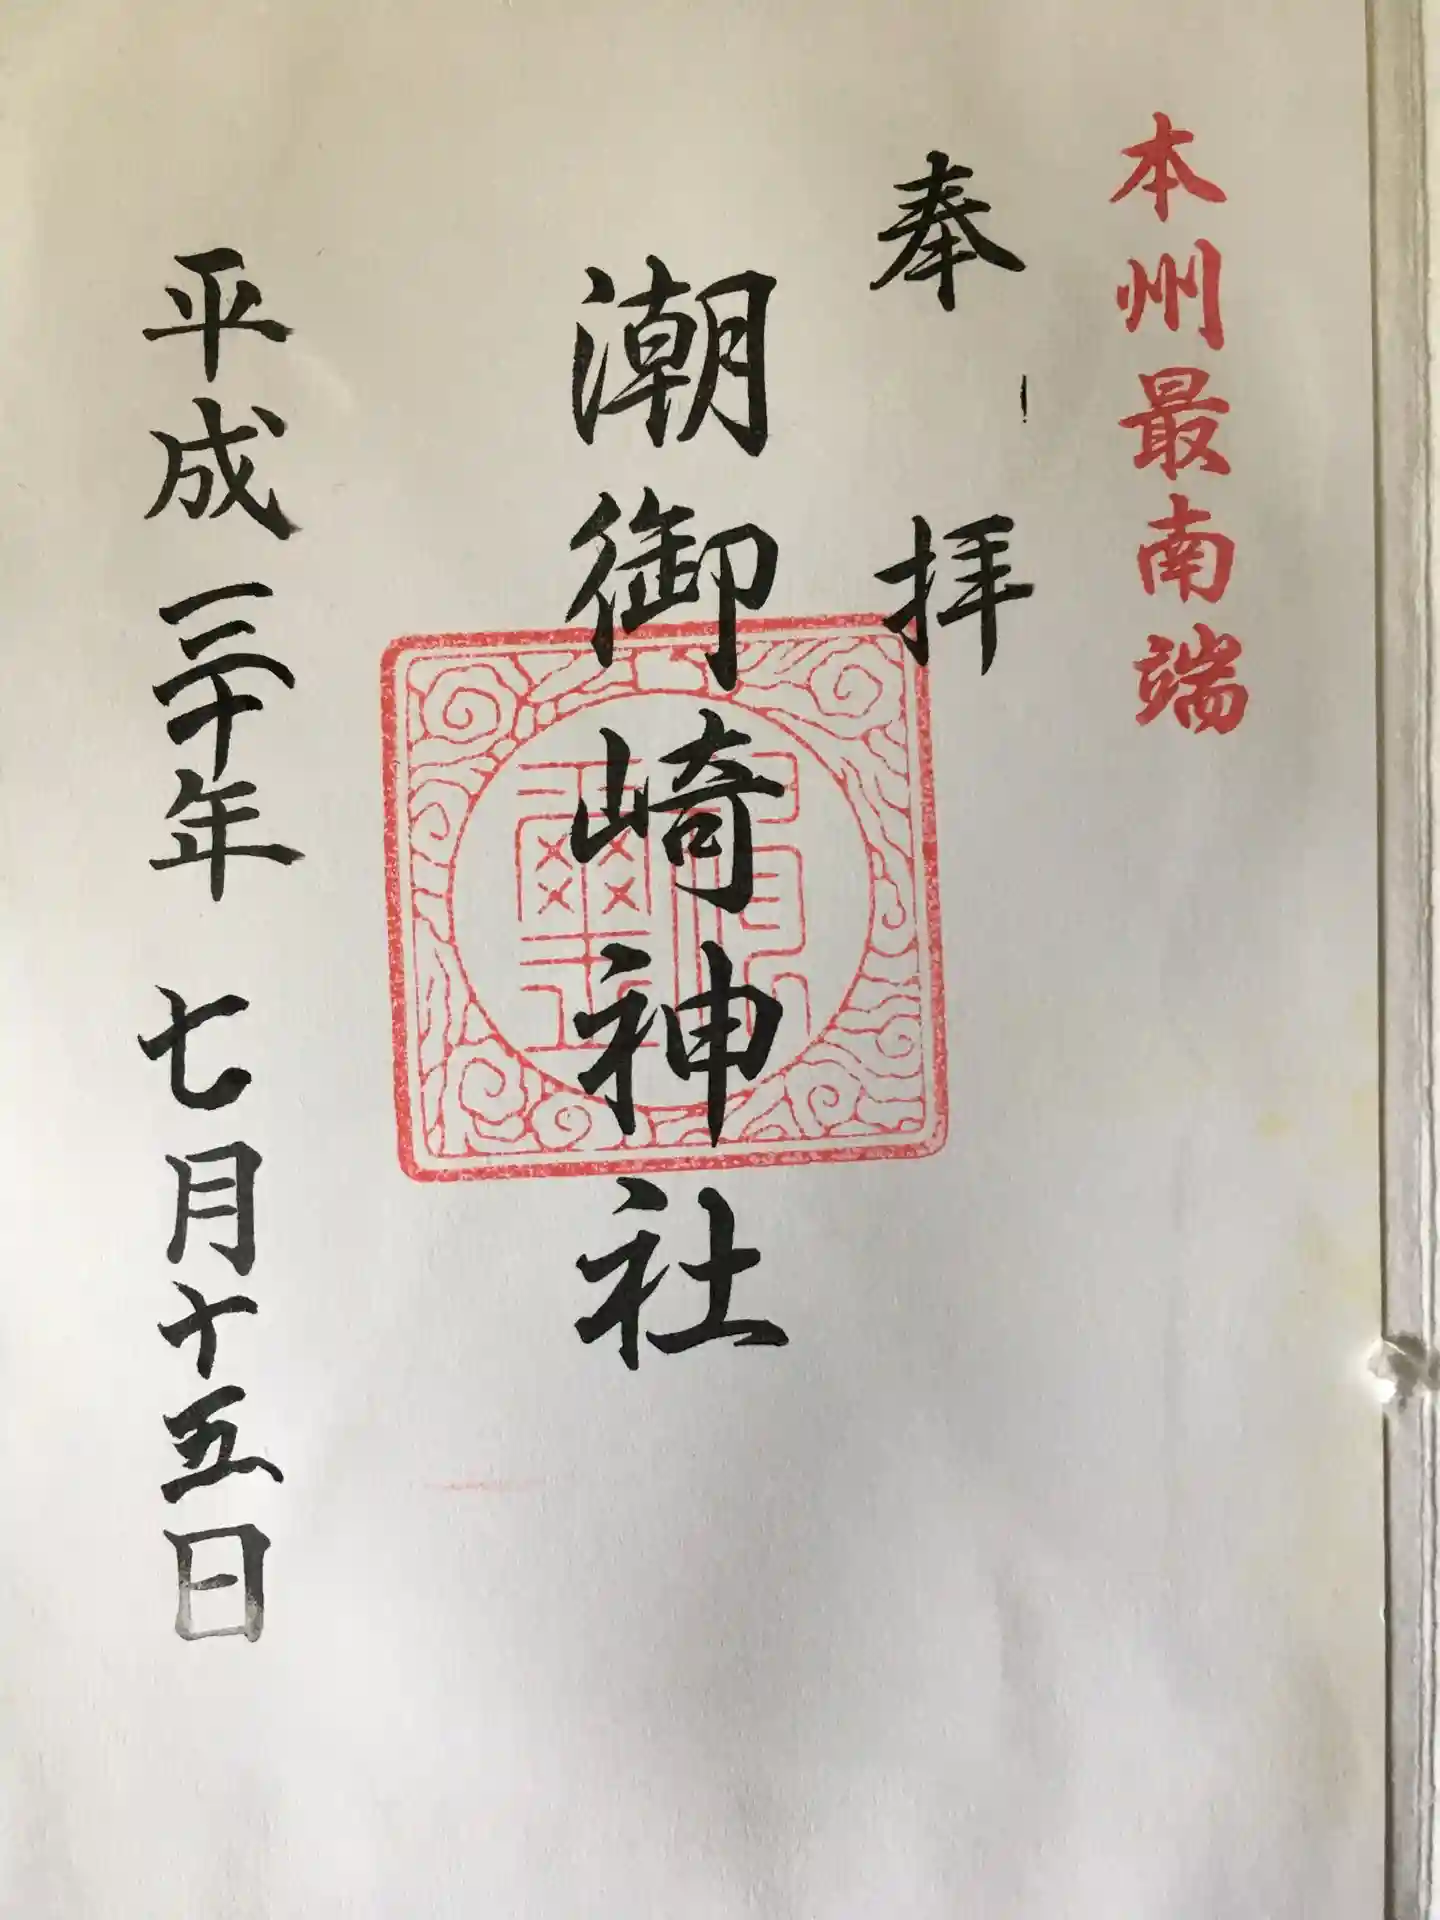 本州最南端
奉拝
潮御崎神社
平成三十年 七月十五日